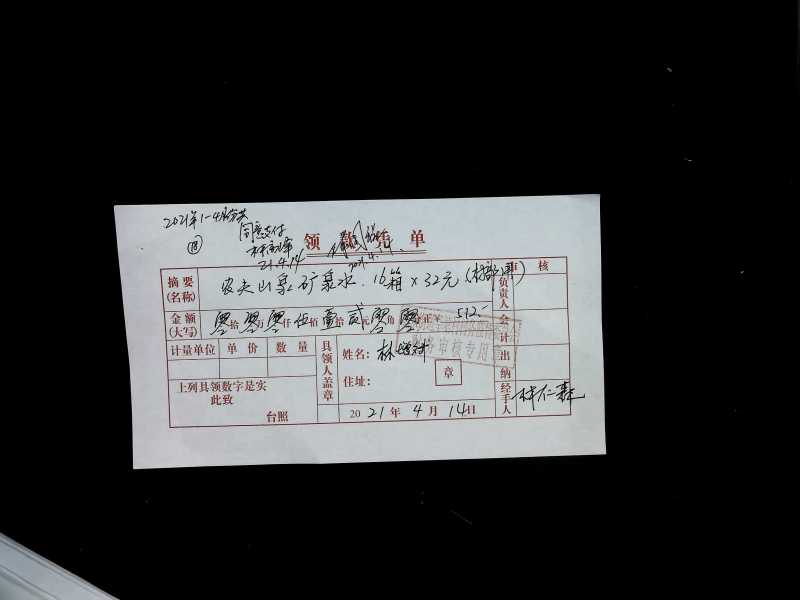 2021年1-4月份共
同意支付
21.4.14
2021.4.14
领款凭单
摘要(名称) 农夫山泉矿泉水.16箱×32元(村部用)
审核
负责人
金额(大写) 零拾零万零仟伍佰壹拾贰元零角零分正¥ 512.-
会计
审核专用
计量单位 单价 数量
具领人盖章
姓名: 林
住址:
章
出纳
上列具领数字是实
此致
台照
2021年4月14日
经手人 林仁森